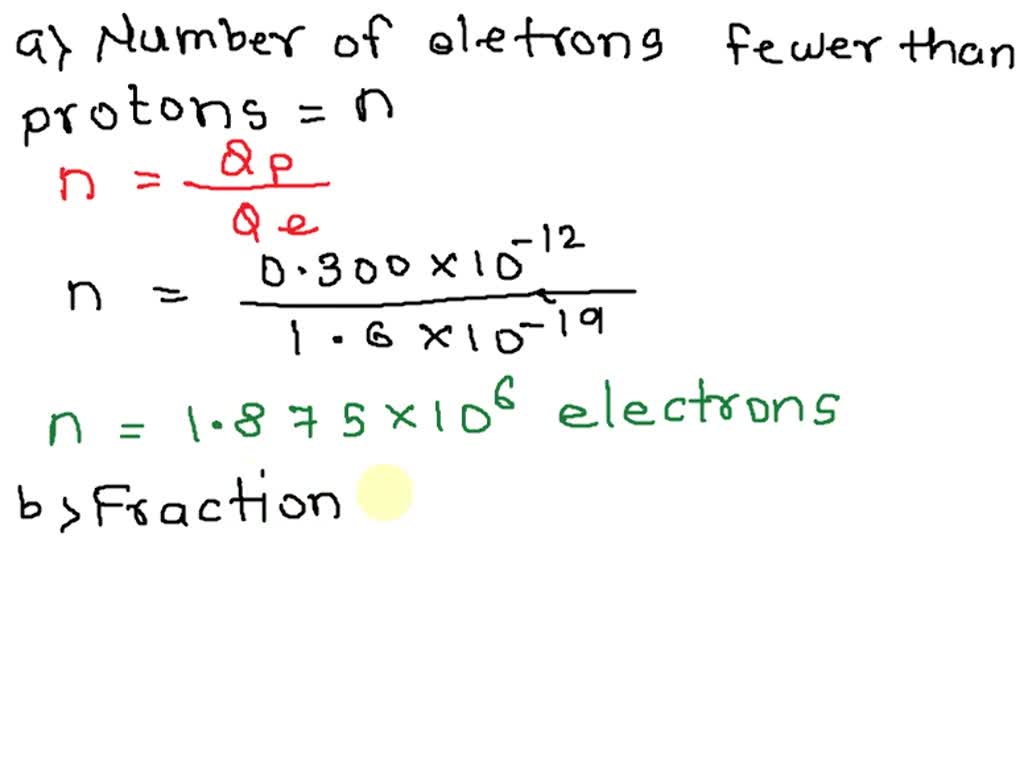 a) Number of eletrons fewer than
protons = n
n = Qp / Qe
n = 0.300 × 10⁻¹² / 1.6 × 10⁻¹⁹
n = 1.875 × 10⁶ electrons
b) Fraction